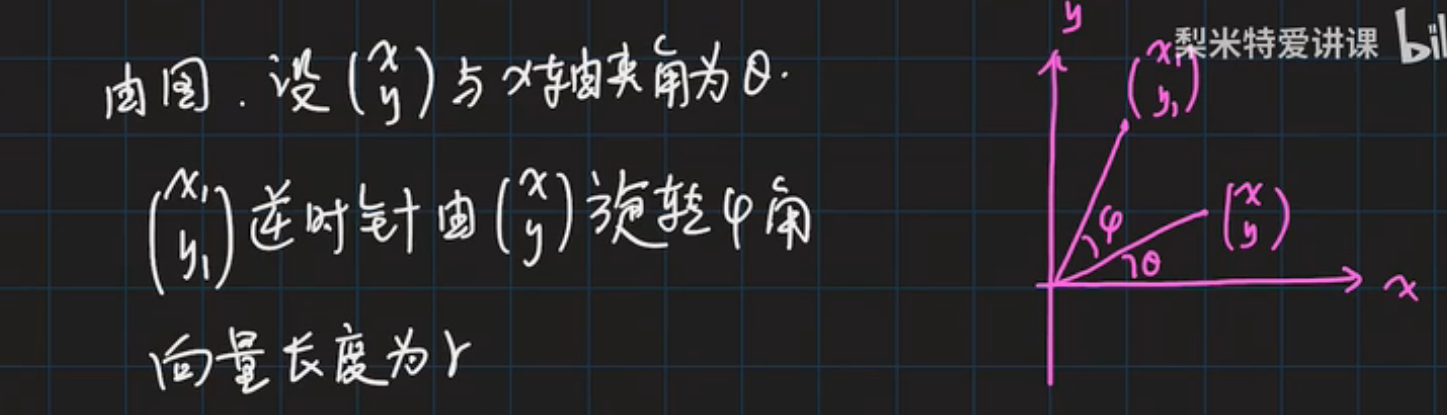 由图．设(x y)与x轴夹角为θ.
(x₁ y₁)逆时针由(x y)旋转φ角
向量长度为r
y
梨米特爱讲课 bil
(x₁ y₁)
φ
(x y)
θ
x